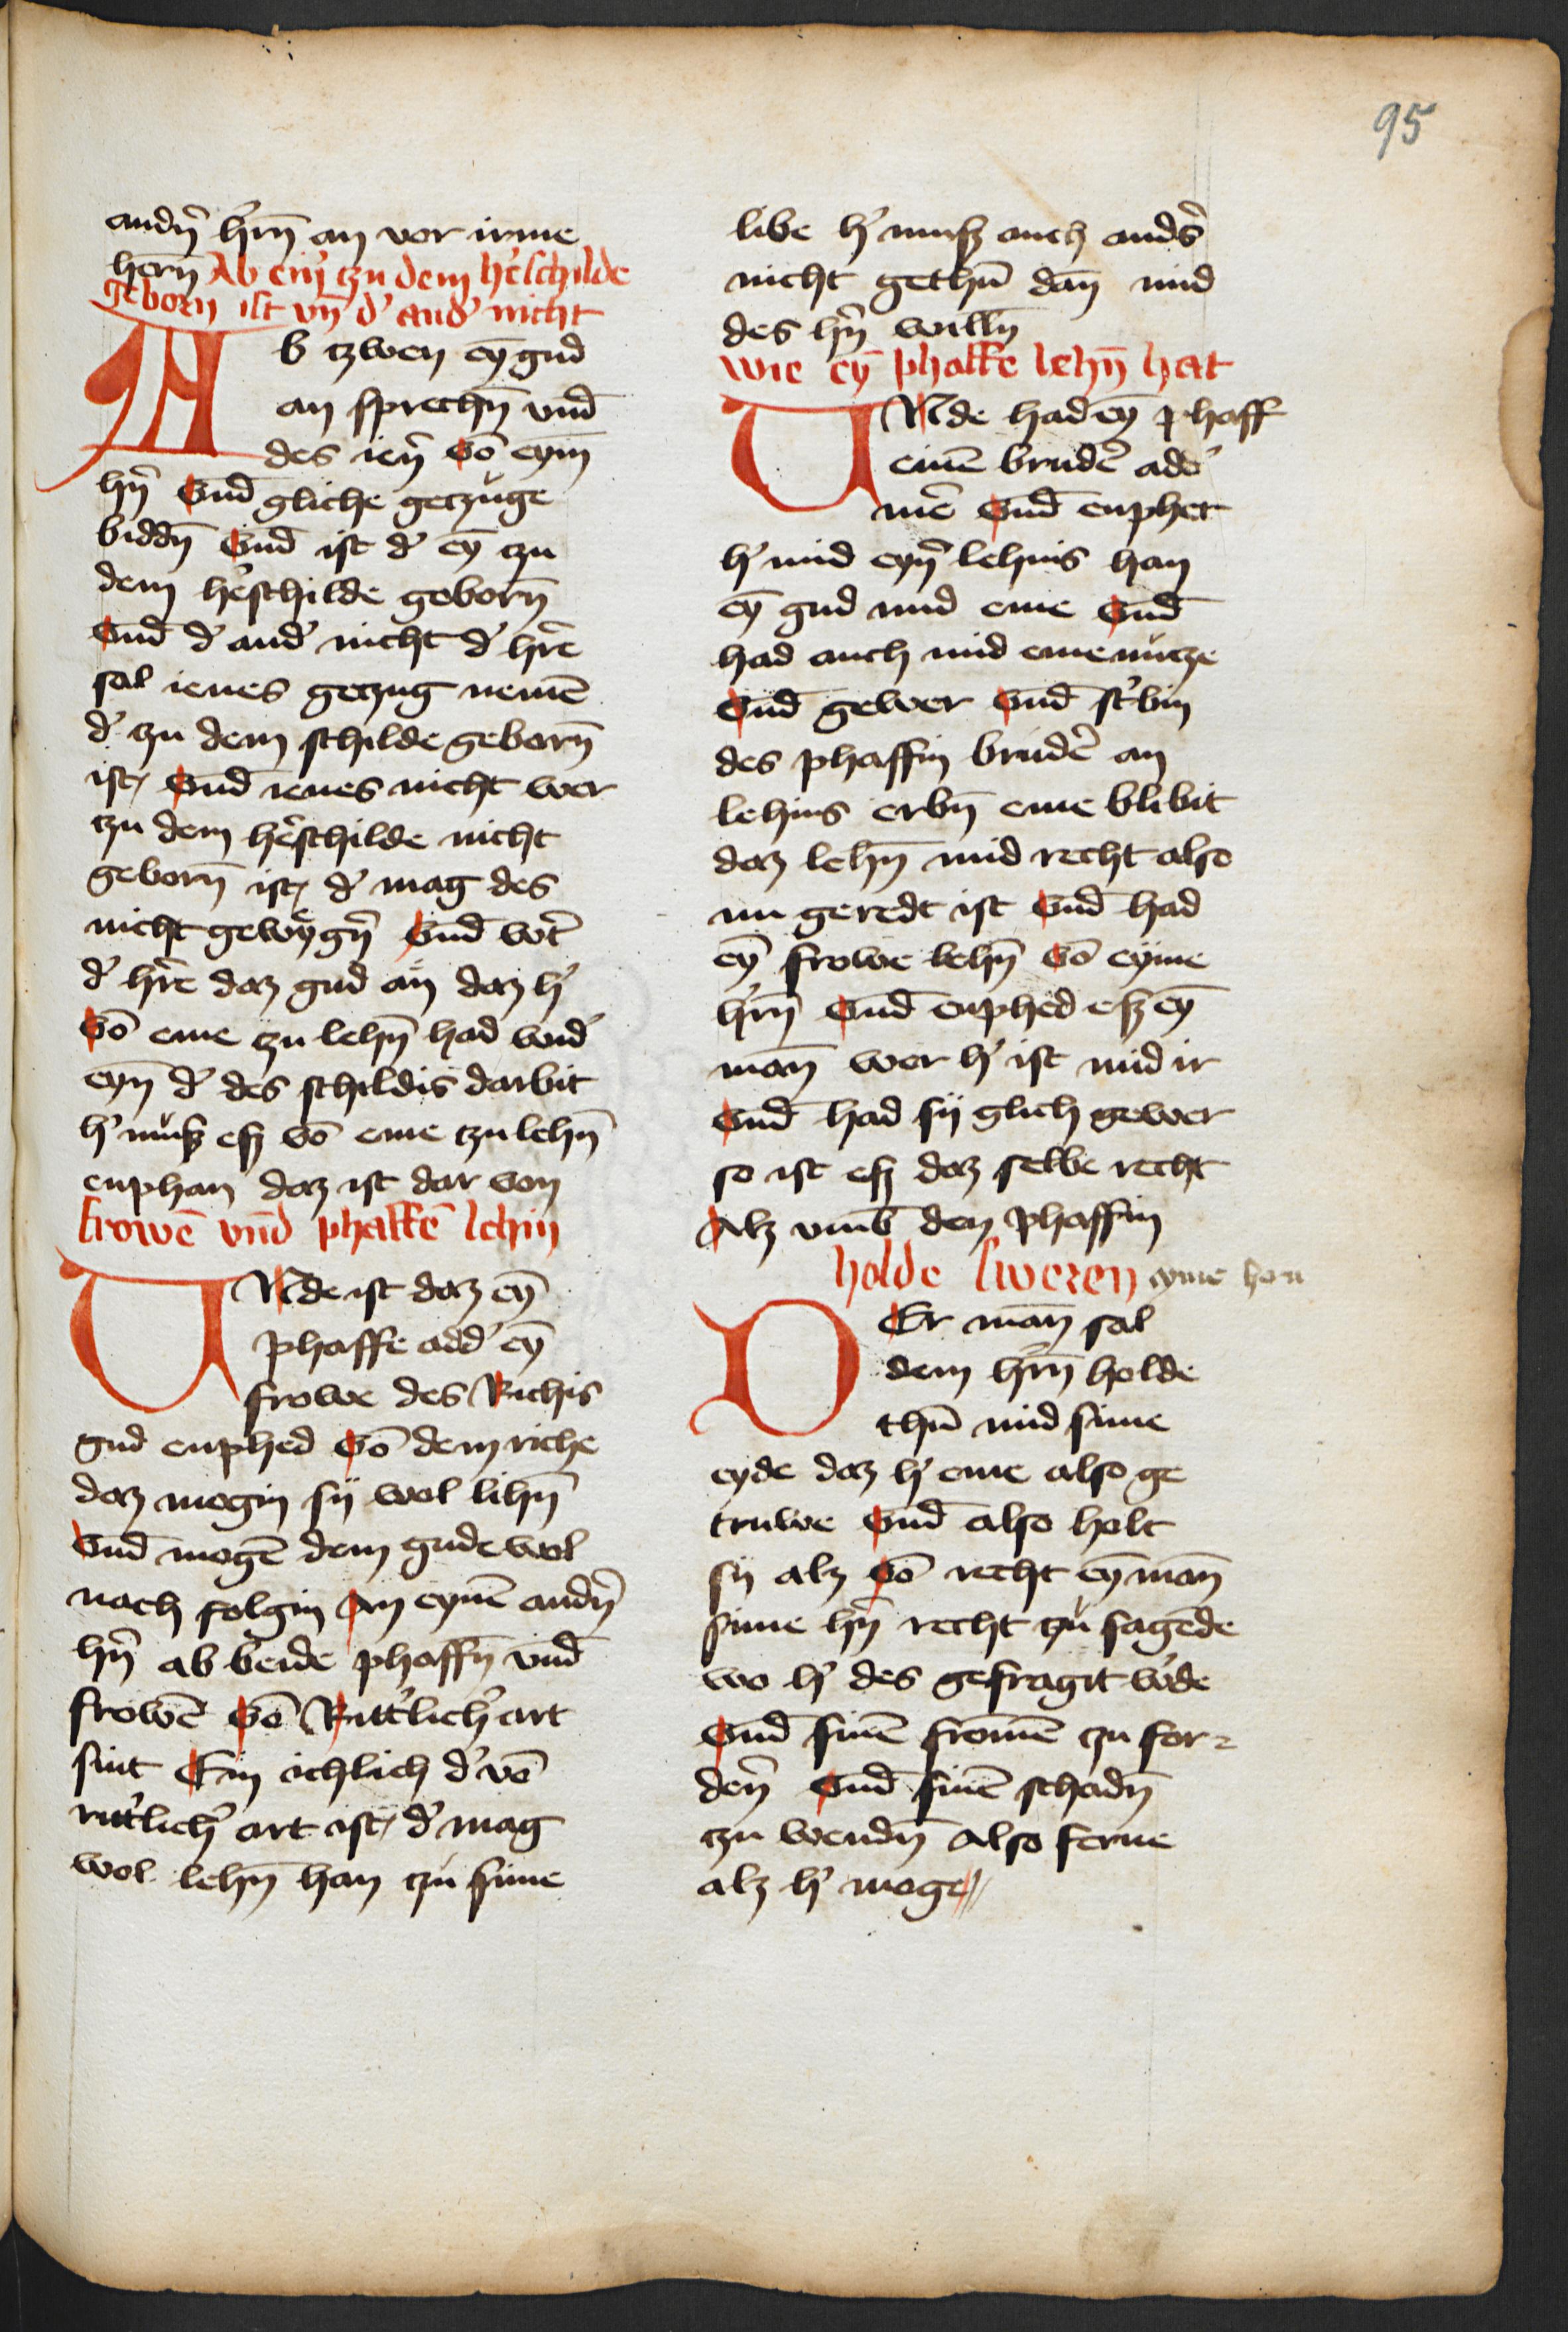 95
andn̄ h'rn̄ an vor irme
hern̄ Ab eyn̄ tzu dem h'schilde
geborn ist vn̄ d' and' nicht
Ab tzwen eȳ gud
an sprechn̄ vnd̄
des ien̄ vō eym̄
hn̄ vnd̄ gliche getzuge
biddn̄ vnd̄ ist d' eȳ tzu
dem h'eschilde geborn̄
vnd̄ d' and' nicht d' hrē
sal ienes getzug nemē
d' tzu dem schilde geborn̄
ist, vnd̄ ienes nicht wer
tzu dem h'eschilde nicht
geborn̄ ist, d' mag des
nicht geweygn̄ vnd̄ wet'
d' hrē daz gud an daz h'
vō eme tzu lehn̄ had wid'
eyn̄ d' des schildis darbit
h' musz esz vō eme tzu lehn̄
enphan daz ist dar von
frowē vnd̄ phaffē lehin
UNde ist daz eȳ
phaffe add' eȳ
frowe des Richis
gud enphed vō dem riche
daz mogin sij wol lihn̄
vnd̄ mogē dem gude wol
nach folgin An eynē andn̄
hn̄ ab beide phaffn̄ vnd̄
frowē vō Ritt'lich' art
sint Ein ichlich d' vō
ritt'lich' art ist, d' mag
wol lehn̄ han tzu sime
libe h' musz auch and's
nicht gethū dan̄ mid
des hn̄ willn̄
wie eȳ phaffe lehn̄ hat
UNde had eȳ phaff
einē brud' add'
mē vnd̄ enphet
h' mid eyn̄ lehins han
eȳ gud mid eme vnd̄
had auch mid eme nutze
vnd̄ gewer vnd̄ st'bin
des phaffin brud' an
lehins erbn̄ eme blibit
daz lehn̄ mid recht also
nu geredt ist vnd̄ had
eȳ frowe lehn̄ vō eyme
h'rn̄ vnd̄ enphed esz eȳ
man̄ wer h' ist mid ir
vnd̄ had sij glich gewer
so ist esz daz selbe recht
Alz vmb̄ den phaffin
holde sweren eyme hern
DEr man̄ sal
dem h'rn̄ holde
thū mid sime
eyde daz h' eme also ge
truwe vnd̄ also holt
sij alz vō recht eȳ man̄
sime hn̄ recht tzu sagēde
wo h' des gefragit w'de
vnd̄ sinē fromē tzu for=
den̄ vnd̄ sinē schadn̄
tzu wendn̄ Also ferne
alz h' moge//